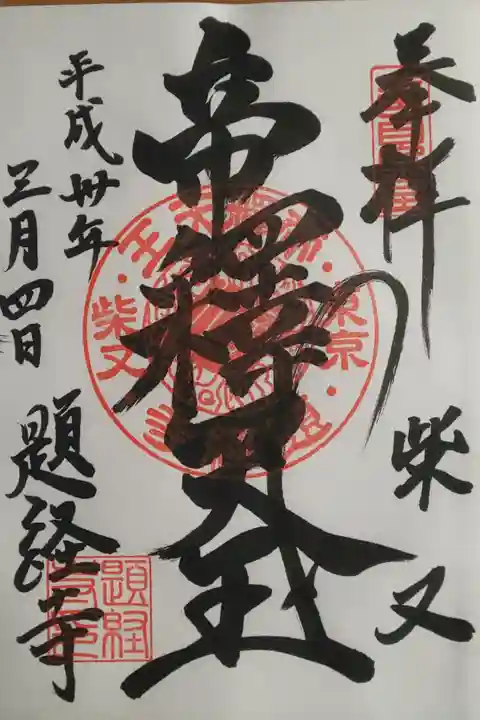 奉拝 柴又
帝釋天王
平成卅年三月四日
題経寺
東京
柴又
天王
題経